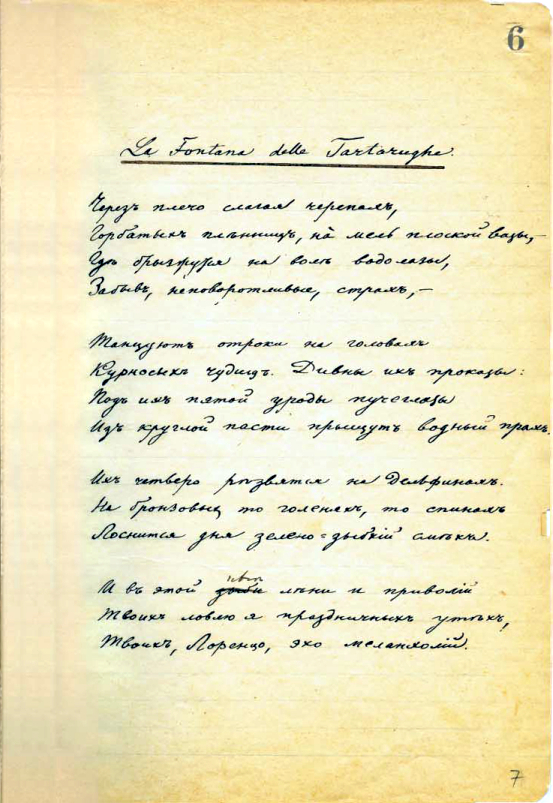 6
La Fontana delle Tartarughe.
Черезъ плечо слагая черепахъ,
Горбатыхъ плѣнницъ, на мель плоской вазы,
Гдѣ брызжутся на волѣ водолазы,
Забывъ, неповоротливые, страхъ, –
Танцуютъ отроки на головахъ
Курносыхъ чудищъ. Дивны ихъ проказы:
Подъ ихъ пятой уроды пучеглазы
Изъ круглой пасти прыщутъ водный прахъ.
Ихъ четверо рѣзвятся на дельфинахъ.
На бронзовыхъ то голеняхъ, то спинахъ
Лоснится дня зелено-зыбкій смѣхъ.
нѣгѣ
И въ этой зыби лѣни и приволій
Твоихъ ловлю я праздничныхъ утѣхъ,
Твоихъ, Лоренцо, эхо меланхолій.
7